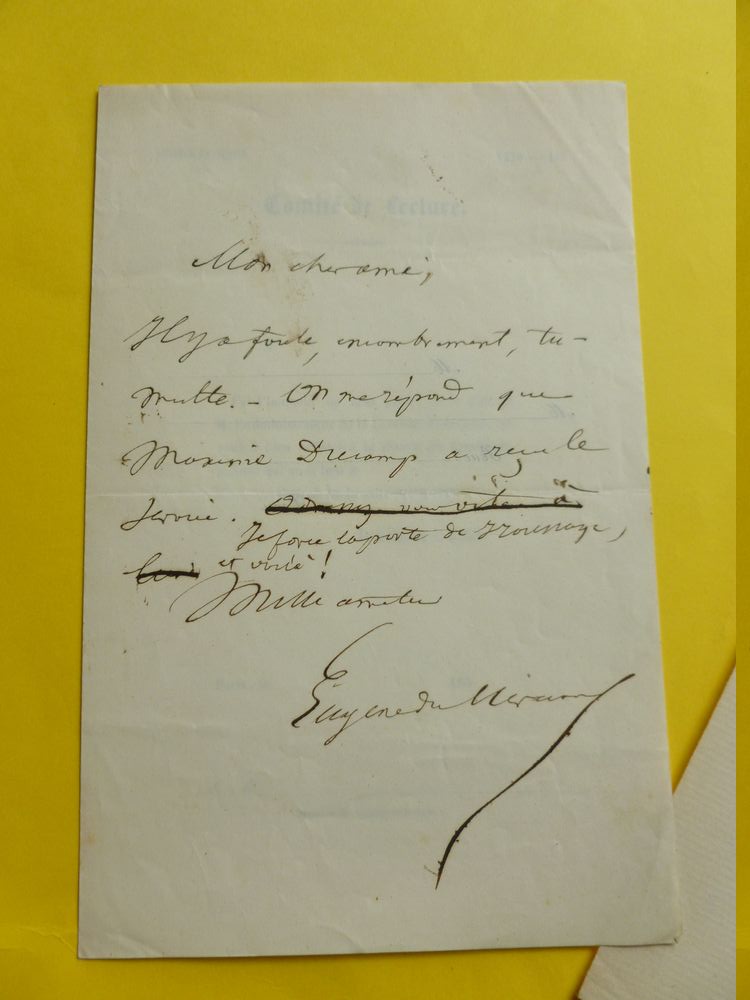 Comité de Lecture.
Mon cher ami,
Il y a foule, encombrement, tu-
multe. - On me répond que
Maxime Ducamp a reçu le
service.
Je force la porte de Houssaye,
et voilà !
Mille amitiés
Eugène de Mirecourt